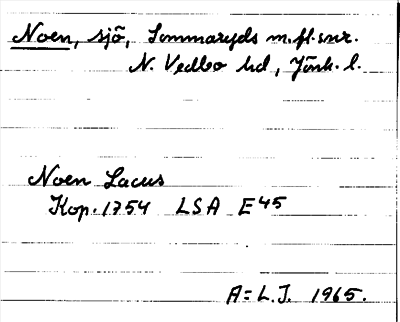 Noen, sjö, Sommaryds m.fl. snr.
N. Vedbo hd, Jönk. l.
Noen Lacus
Kop. 1754 LSA E45
A=L.J. 1965.